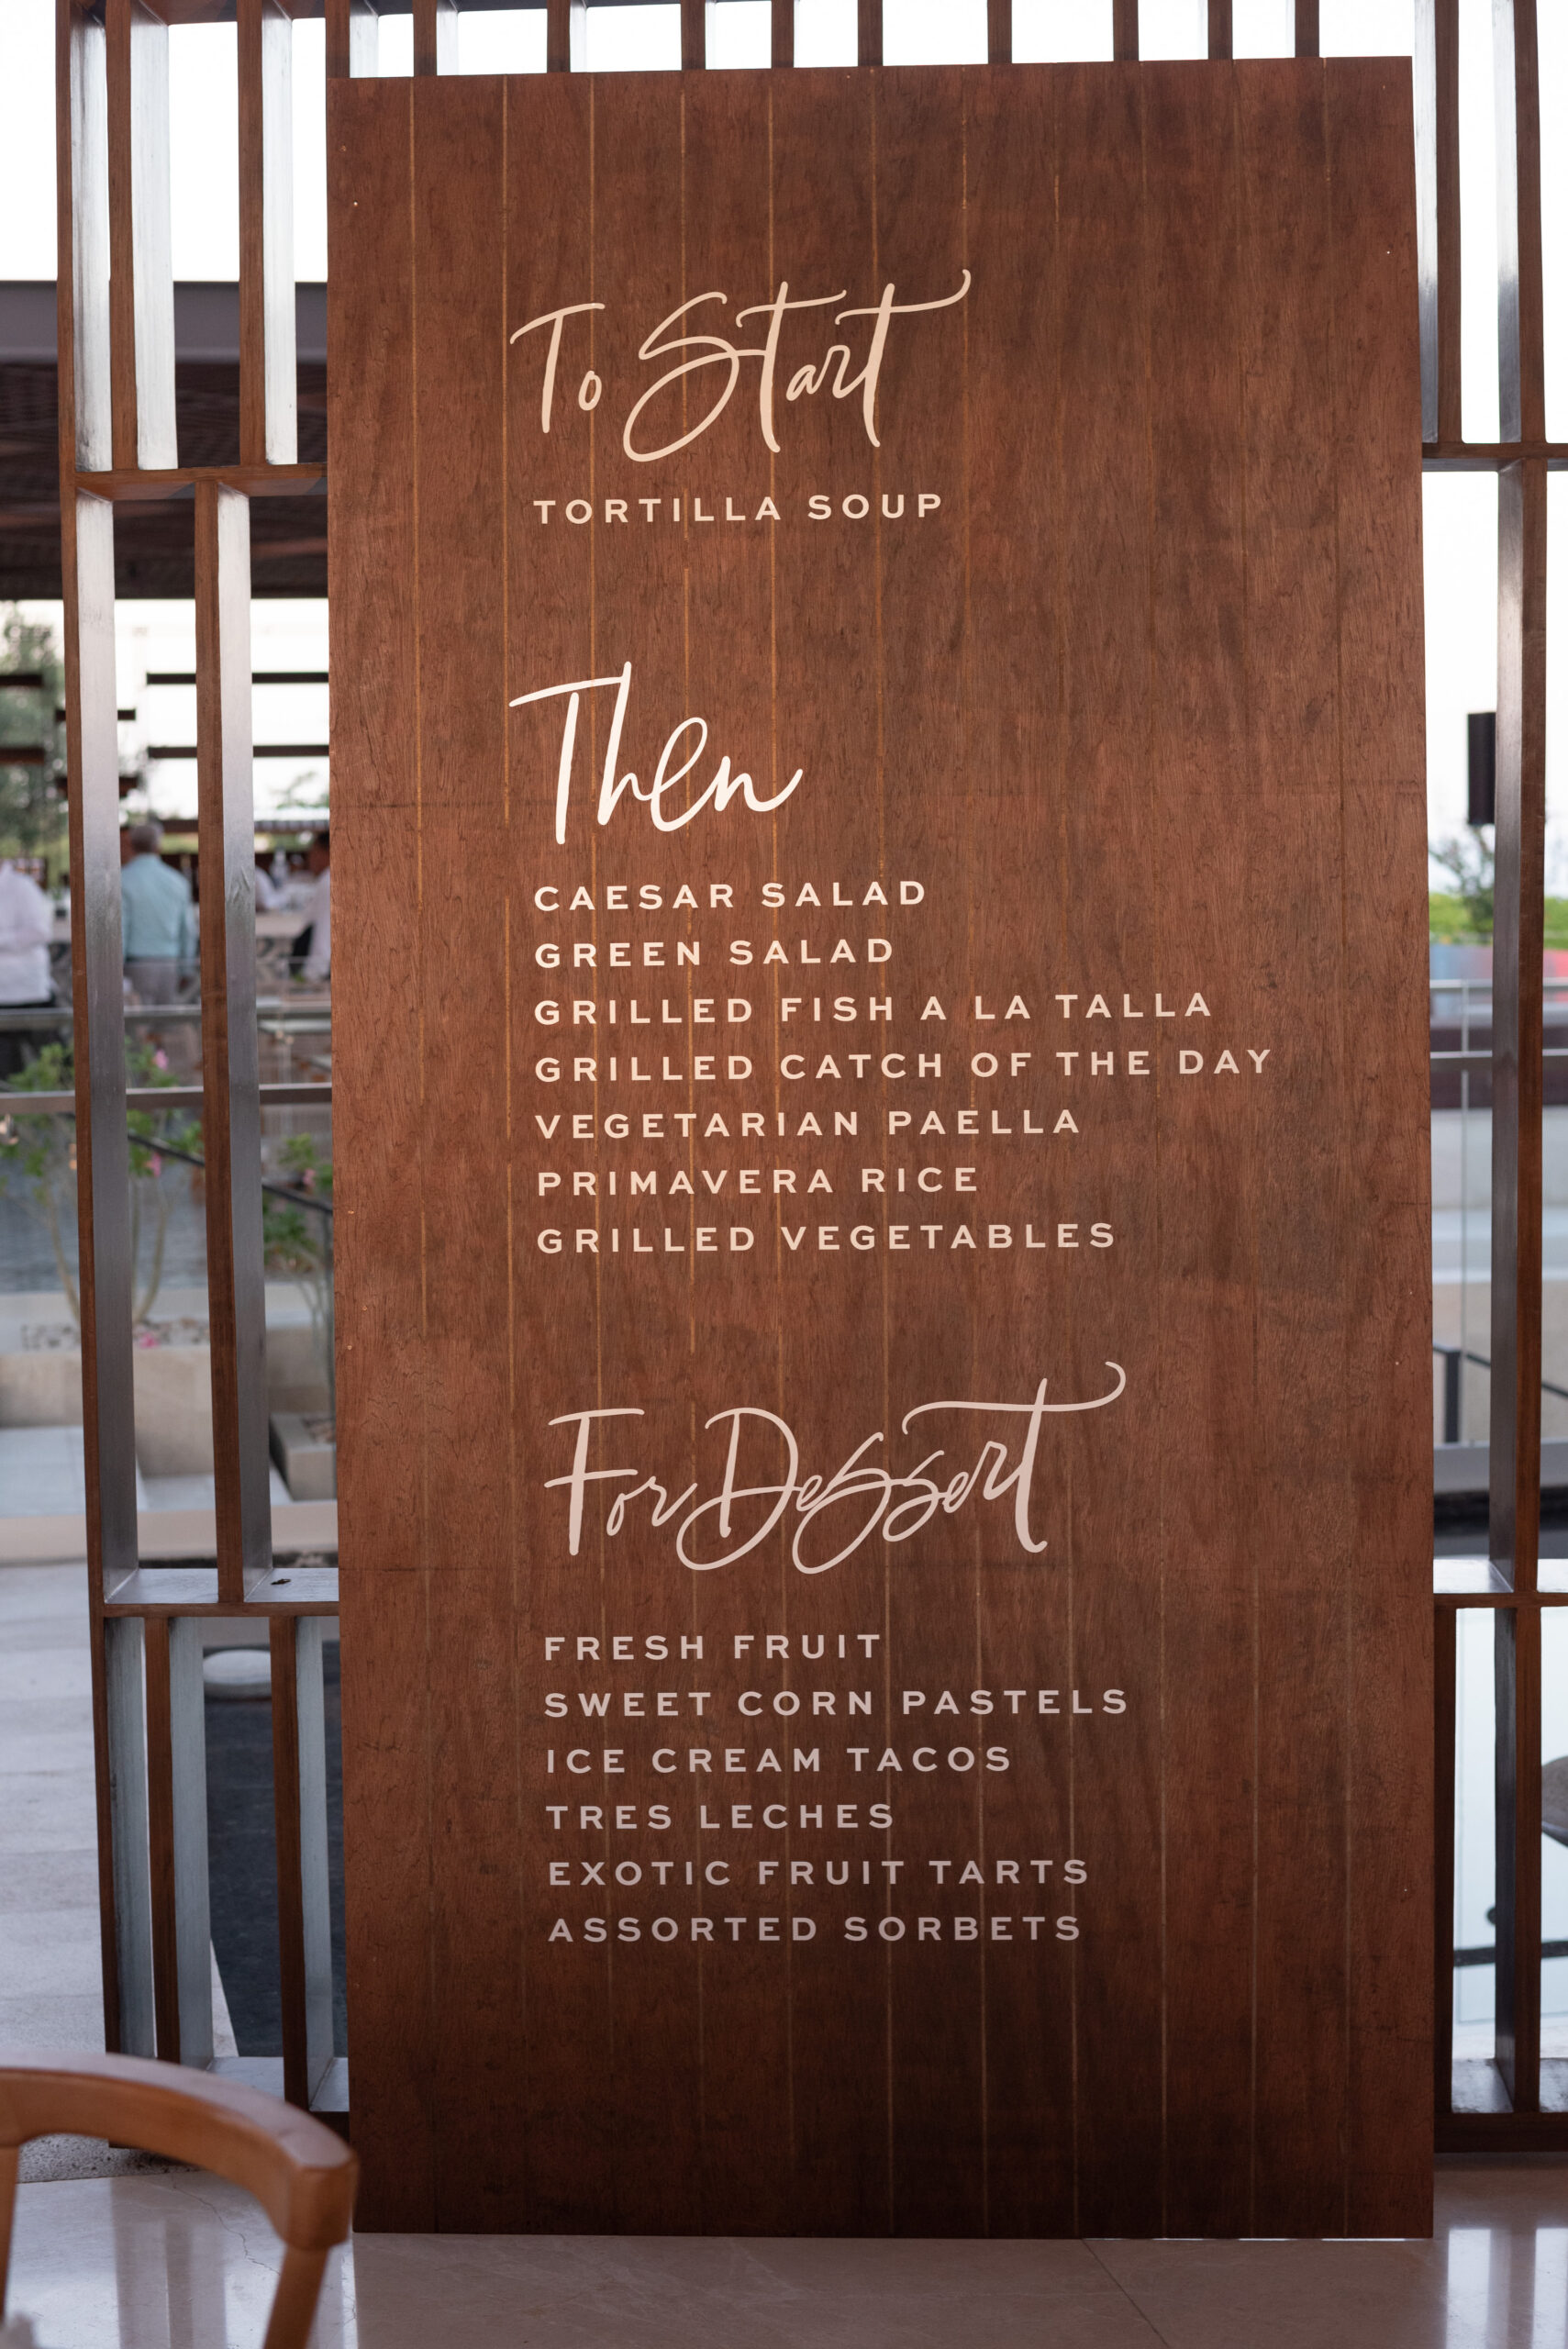 To Start
TORTILLA SOUP
Then
CAESAR SALAD
GREEN SALAD
GRILLED FISH A LA TALLA
GRILLED CATCH OF THE DAY
VEGETARIAN PAELLA
PRIMAVERA RICE
GRILLED VEGETABLES
For Dessert
FRESH FRUIT
SWEET CORN PASTELS
ICE CREAM TACOS
TRES LECHES
EXOTIC FRUIT TARTS
ASSORTED SORBETS